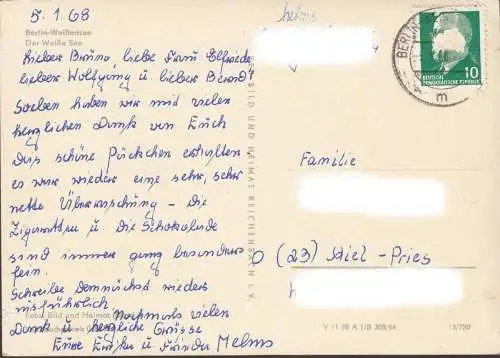 5.1.68
Berlin-Weißensee
Der Weiße See
Lieber Bruno, liebe Frau Elfriede,
lieber Wolfgang u lieber Bernd!
Soeben haben wir mit vielen
herzlichen Dank von Euch
das schöne Päckchen erhalten
es war wieder eine sehr, sehr
nette Überraschung – die
Zigaretten u. die Schokolade
sind immer ganz besonders
fein.
Schreibe Demnächst wieder
ausführlich
Nochmals vielen
Dank u. herzliche Grüsse
Eure und Melms
Foto: Bild und Heimat
BILD UND HEIMAT REICHENBACH I. V.
melms
BERLIN
m
DEUTSCHE
DEMOKRATISCHE REPUBLIK
10
Familie
(23) Kiel-Pries
V 11 28 A 1/B 308/64
13/730